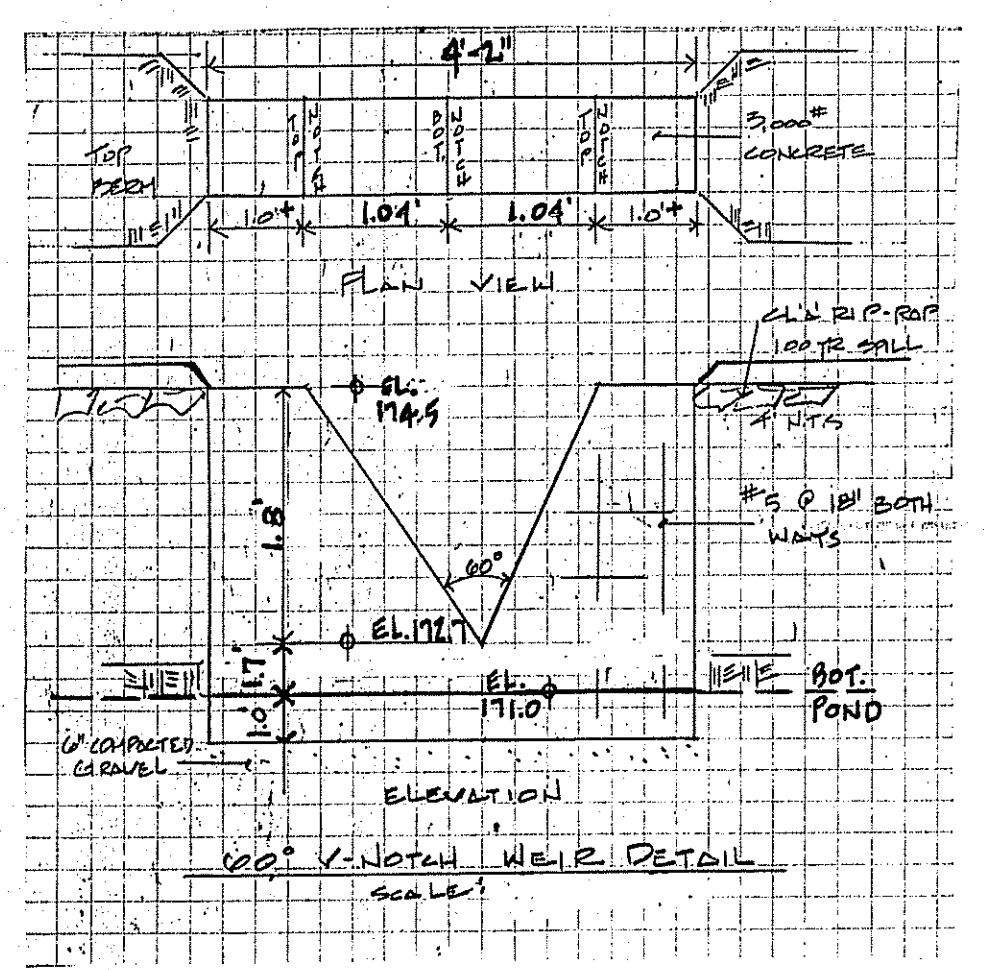 4'-2"
TOP
BERM
TOP
NOTCH
BOT.
NOTCH
TOP
NOTCH
3,000#
CONCRETE
1.0'+
1.04'
1.04'
1.0'+
PLAN VIEW
CL 'A' RIP-RAP
100 YR SPILL
EL.
174.5
4' N.T.S
1.8'
60°
#5 @ 18" BOTH
WAYS
EL. 172.7
1.7'
EL.
171.0
BOT.
POND
1.0'
6" COMPACTED
GRAVEL
ELEVATION
60° V-NOTCH WEIR DETAIL
SCALE: